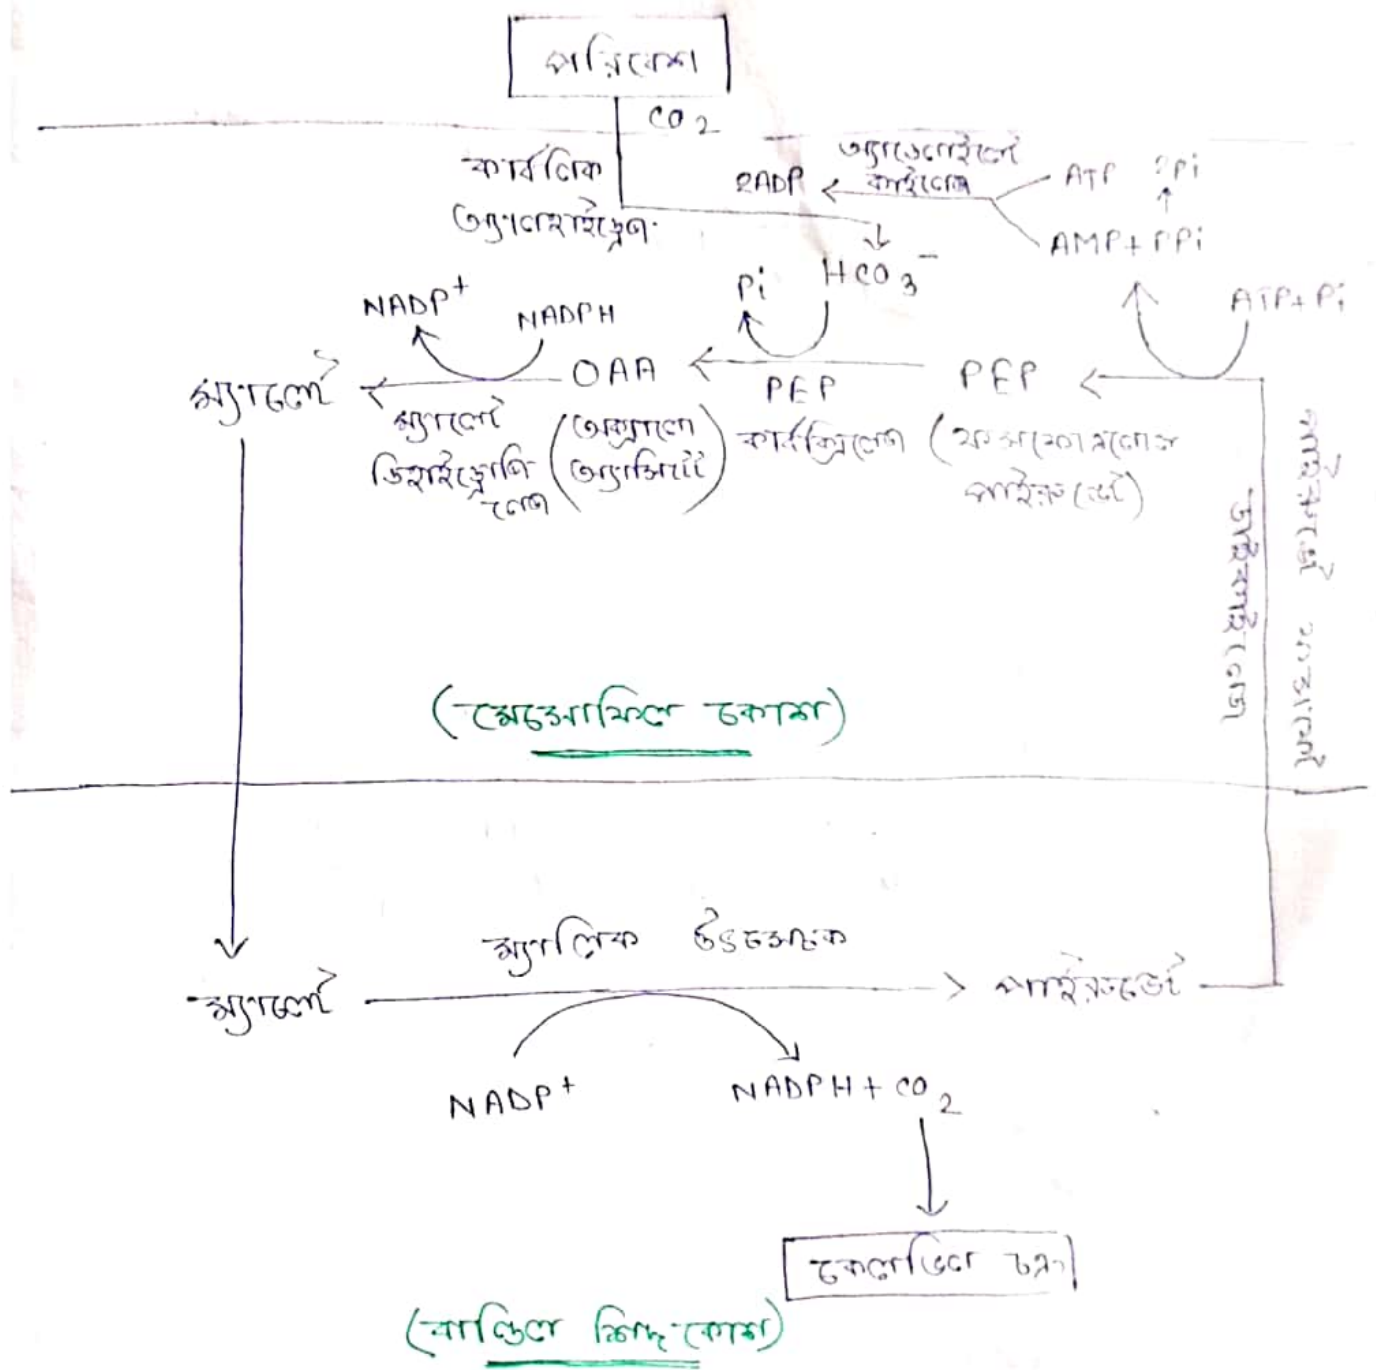 পরিবেশ
CO2
কার্বনিক
অ্যানহাইড্রেজ
2ADP
অ্যাডেনাইলেট
কাইনেজ
ATP 2Pi
AMP + PPi
HCO3-
Pi
ATP + Pi
NADP+
NADPH
ম্যালেট
OAA
PEP
PEP
ম্যালেট
ডিহাইড্রোজি
নেজ
(অক্সালো
অ্যাসিটেট)
কার্বক্সিলেজ
(ফসফোএনোল
পাইরুভেট)
পাইরুভেট ফসফেট
ডাইকাইনেজ
(মেসোফিল কোশ)
ম্যালেট
ম্যালিক উৎসেচক
পাইরুভেট
NADP+
NADPH + CO2
কেলভিন চক্র
(বান্ডিল শিদ কোশ)